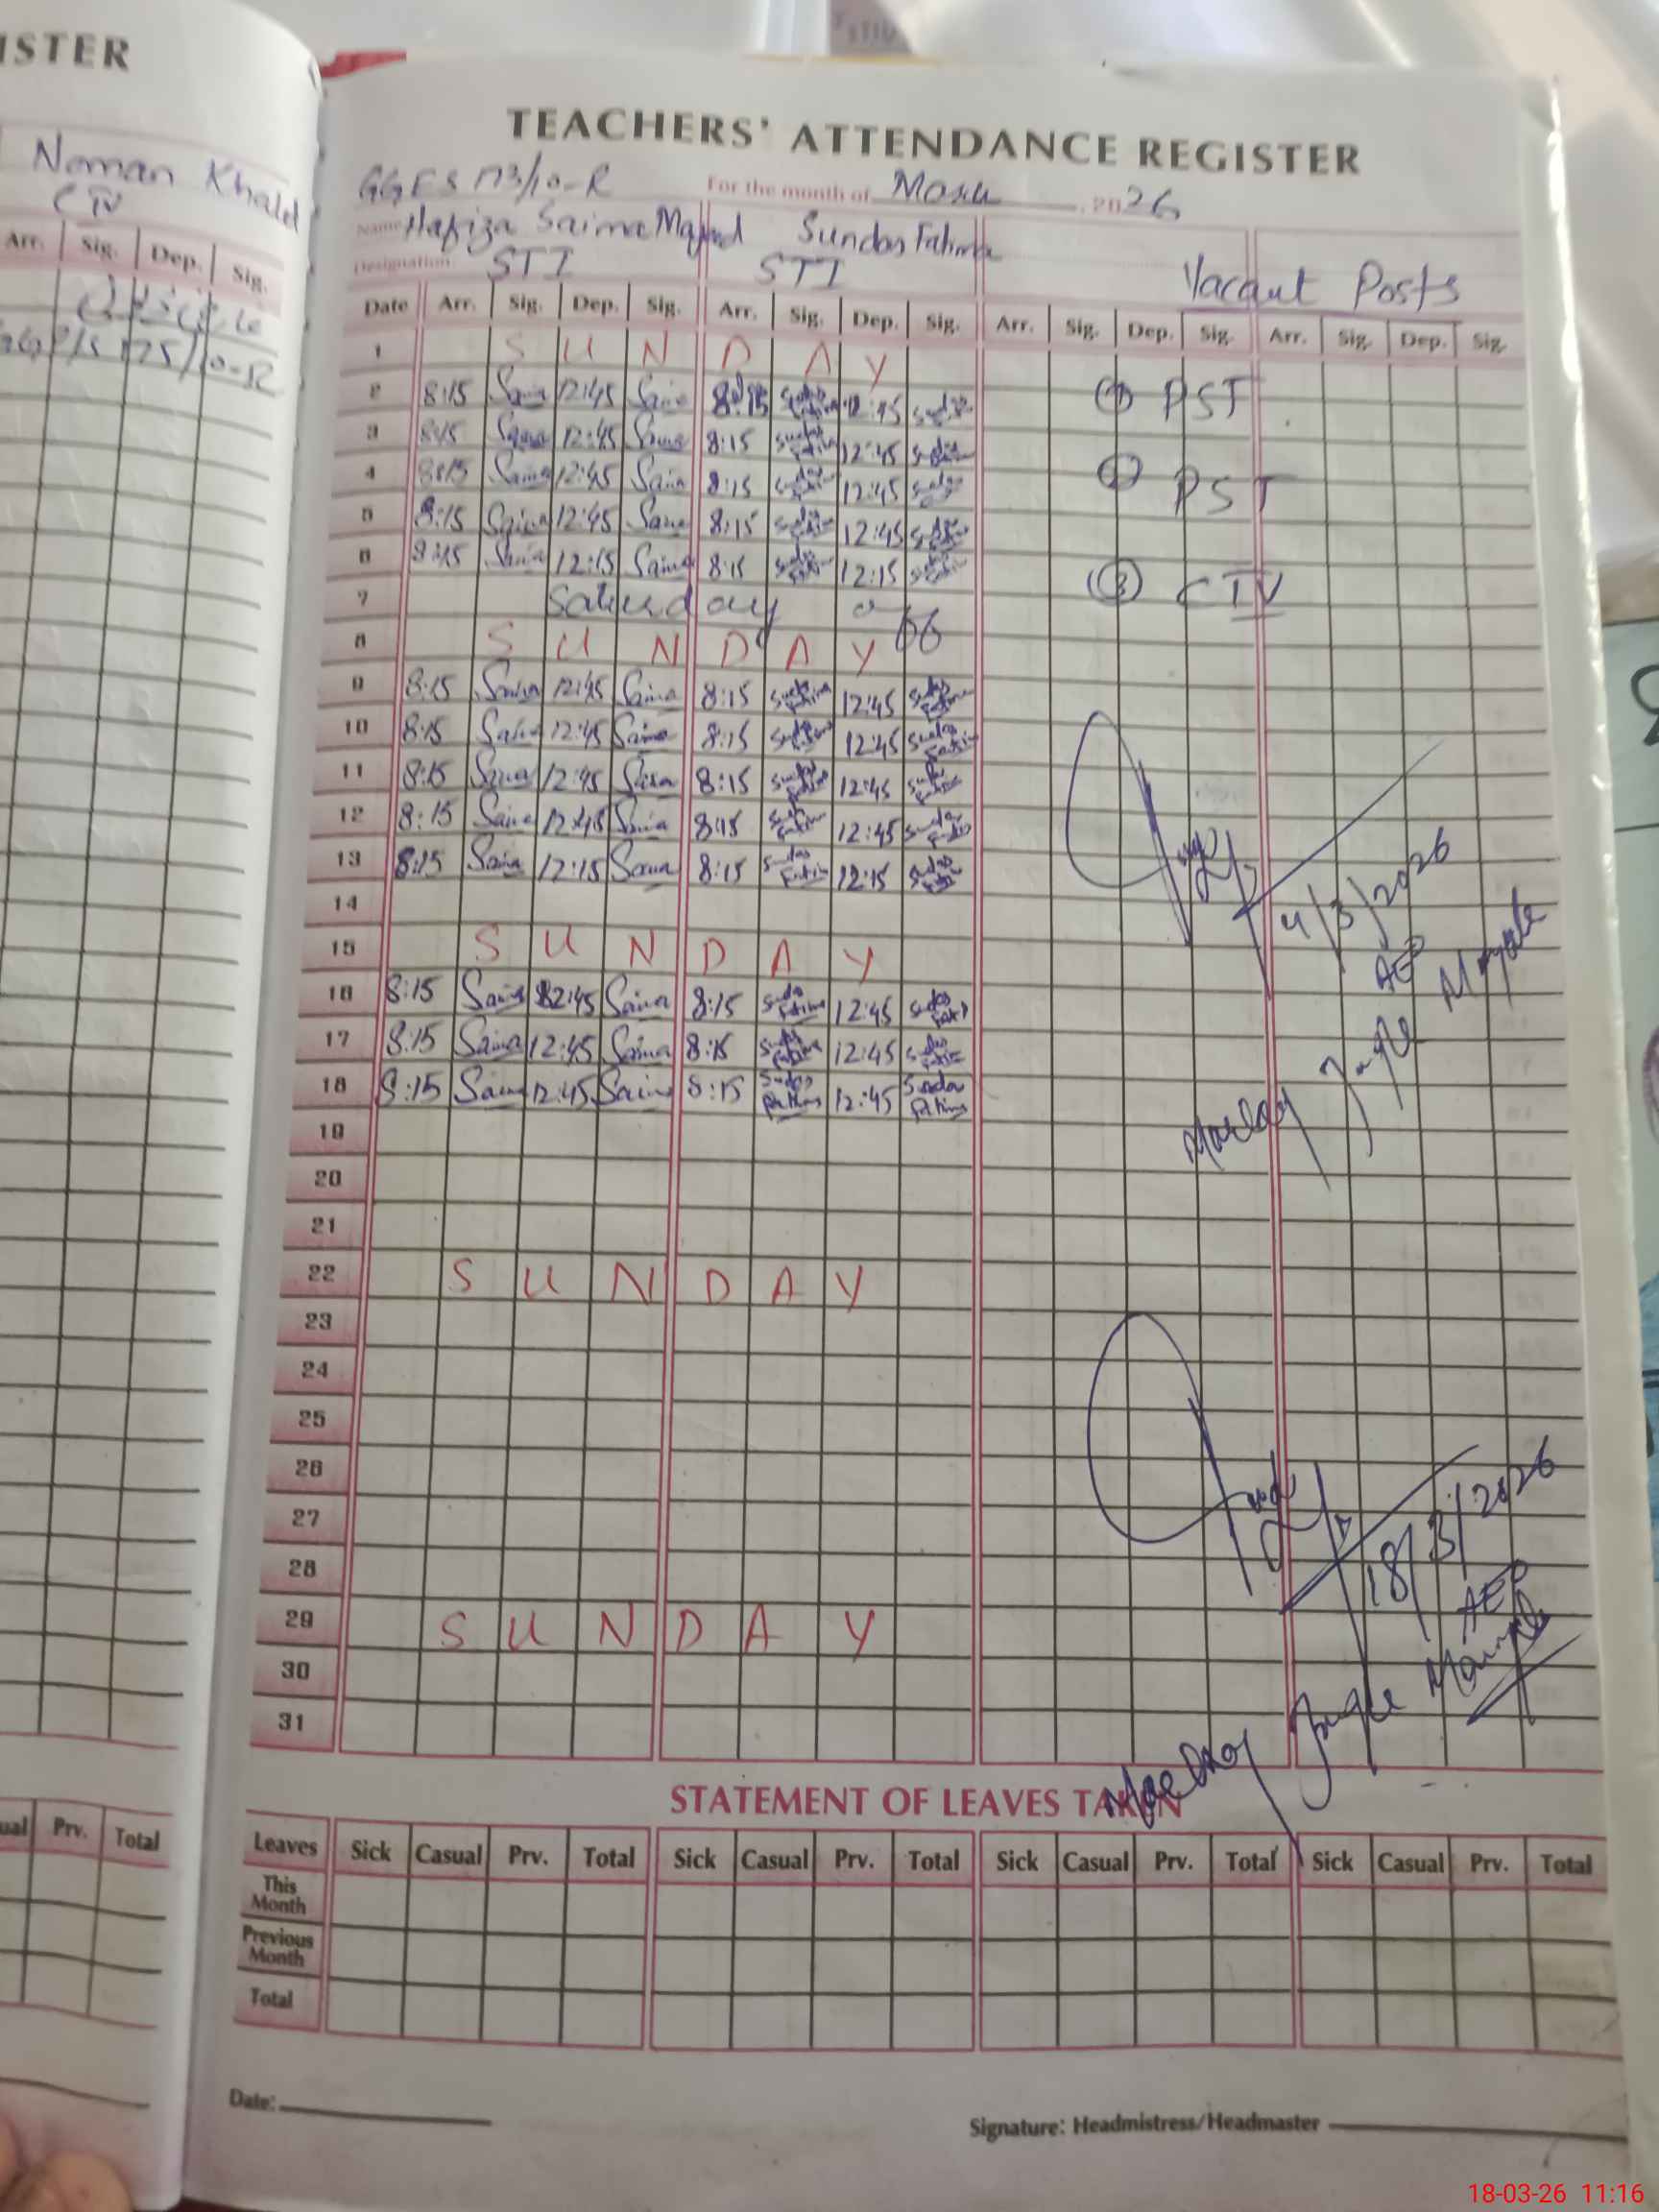 ISTER
Noman Khalid
CTV
Arr. Sig. Dep. Sig.
175/10-R
ual Prv. Total
TEACHERS' ATTENDANCE REGISTER
GGES 173/10-R For the month of 2026
Name Hafiza Saima Majeed Sundas Fatima
Designation: STI STI Vacant Posts
Date Arr. Sig. Dep. Sig. Arr. Sig. Dep. Sig. Arr. Sig. Dep. Sig. Arr. Sig. Dep. Sig.
1 S U N D A Y
2 8:15 Saima 12:45 Saima 8:15 Sundas Fatima 12:45 Sundas ① PST
3 8:15 Saima 12:45 Saima 8:15 Sundas Fatima 12:45 Sundas Fatima
4 8:15 Saima 12:45 Saima 8:15 Sundas Fatima 12:45 Sundas Fatima ② PST
5 8:15 Saima 12:45 Saima 8:15 Sundas Fatima 12:45 Sundas Fatima
6 8:15 Saima 12:15 Saima 8:15 Sundas Fatima 12:15 Sundas Fatima ③ CTV
7 Saturday off
8 S U N D A Y
9 8:15 Saima 12:45 Saima 8:15 Sundas Fatima 12:45 Sundas Fatima
10 8:15 Saima 12:45 Saima 8:15 Sundas Fatima 12:45 Sundas Fatima
11 8:15 Saima 12:45 Saima 8:15 Sundas Fatima 12:45 Sundas Fatima
12 8:15 Saima 12:45 Saima 8:15 Sundas Fatima 12:45 Sundas Fatima
13 8:15 Saima 12:15 Saima 8:15 Sundas Fatima 12:15 Sundas Fatima
14
4/3/2026
15 S U N D A Y
AEO
16 8:15 Saima 12:45 Saima 8:15 Sundas Fatima 12:45 Sundas Fatima
17 8:15 Saima 12:45 Saima 8:15 Sundas Fatima 12:45 Sundas Fatima
18 8:15 Saima 12:45 Saima 8:15 Sundas Fatima 12:45 Sundas Fatima
19
20
21
22 S U N D A Y
23
24
25
26
27
28
18/3/2026
29 S U N D A Y
AEO
30
31
STATEMENT OF LEAVES TAKEN
Leaves Sick Casual Prv. Total Sick Casual Prv. Total Sick Casual Prv. Total Sick Casual Prv. Total
This Month
Previous Month
Total
Date:
Signature: Headmistress/Headmaster
18-03-26 11:16